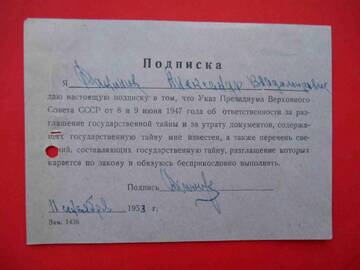 Подписка
Я Александр
даю настоящую подписку в том, что Указ Президиума Верховного
Совета СССР от 8 и 9 июня 1947 года об ответственности за раз-
глашение государственной тайны и за утрату документов, содержа-
щих государственную тайну мне известен, а также перечень све-
дений, составляющих государственную тайну, разглашение которых
карается по закону и обязуюсь беспрекословно выполнять.
Подпись
11 1953 г.
Зак. 1436